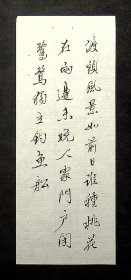 渡頭風景如前日誰種桃花
在兩邊未晚人家門戶閉
鷺鷥獨立釣魚船